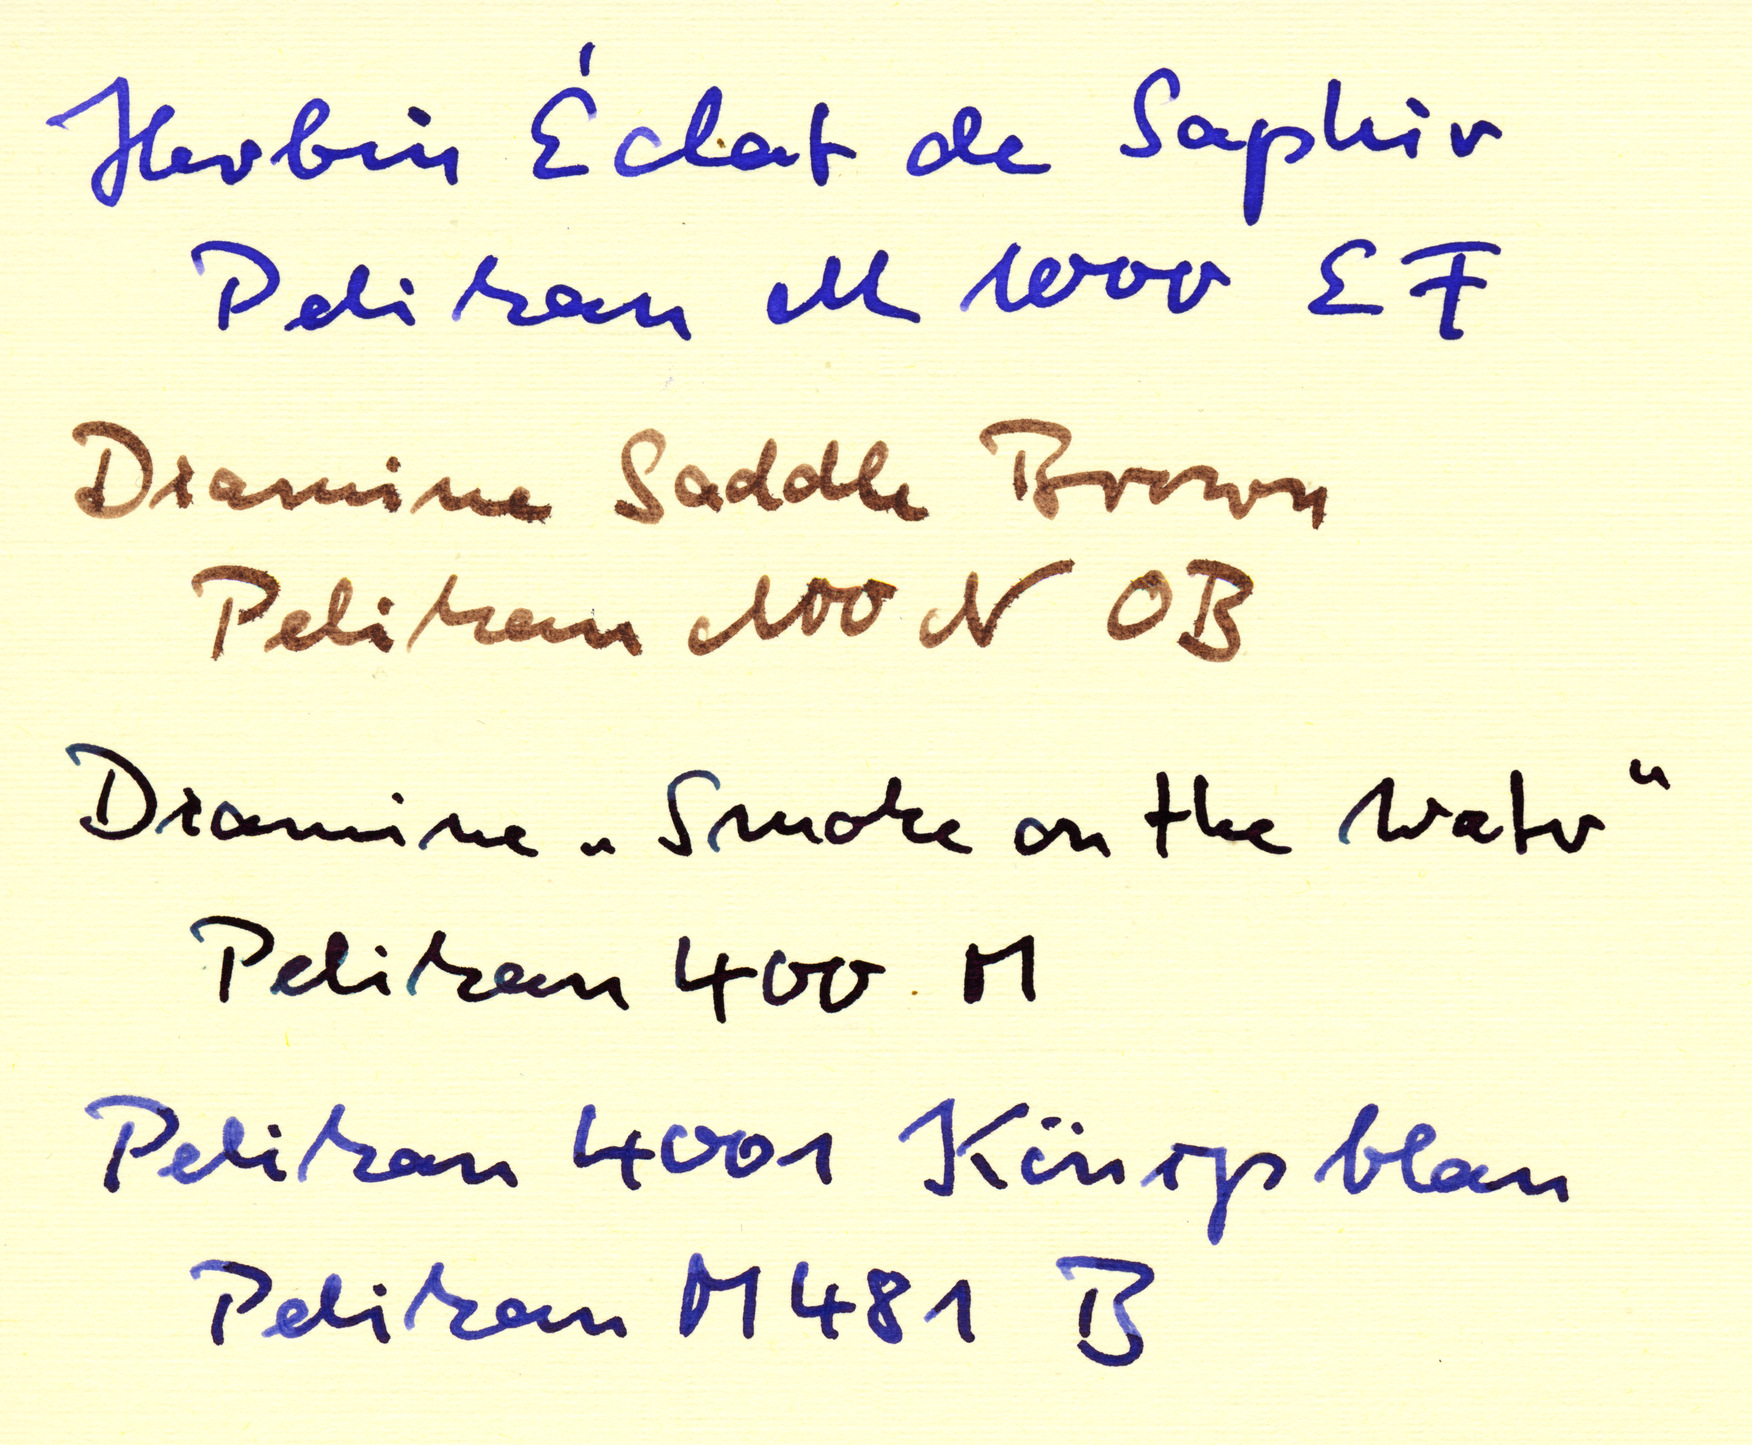 Herbin Éclat de Saphir
Pelikan M 1000 EF
Diamine Saddle Brown
Pelikan 100 N OB
Diamine „Smoke on the Water“
Pelikan 400 M
Pelikan 4001 Königsblau
Pelikan M481 B